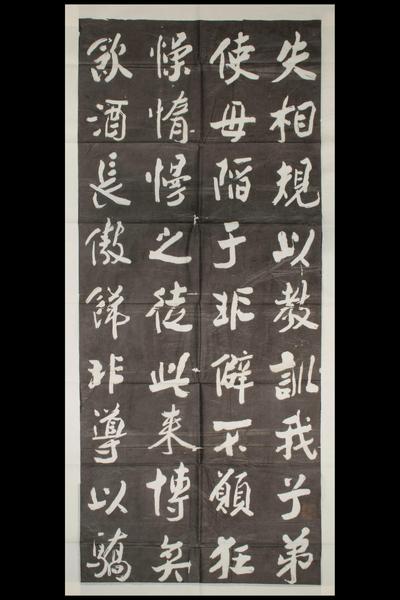 失相規以教訓我子弟
使毋陷于非僻不願狂
懆惰慢之徒此来博奕
飲酒長傲飾非導以驕